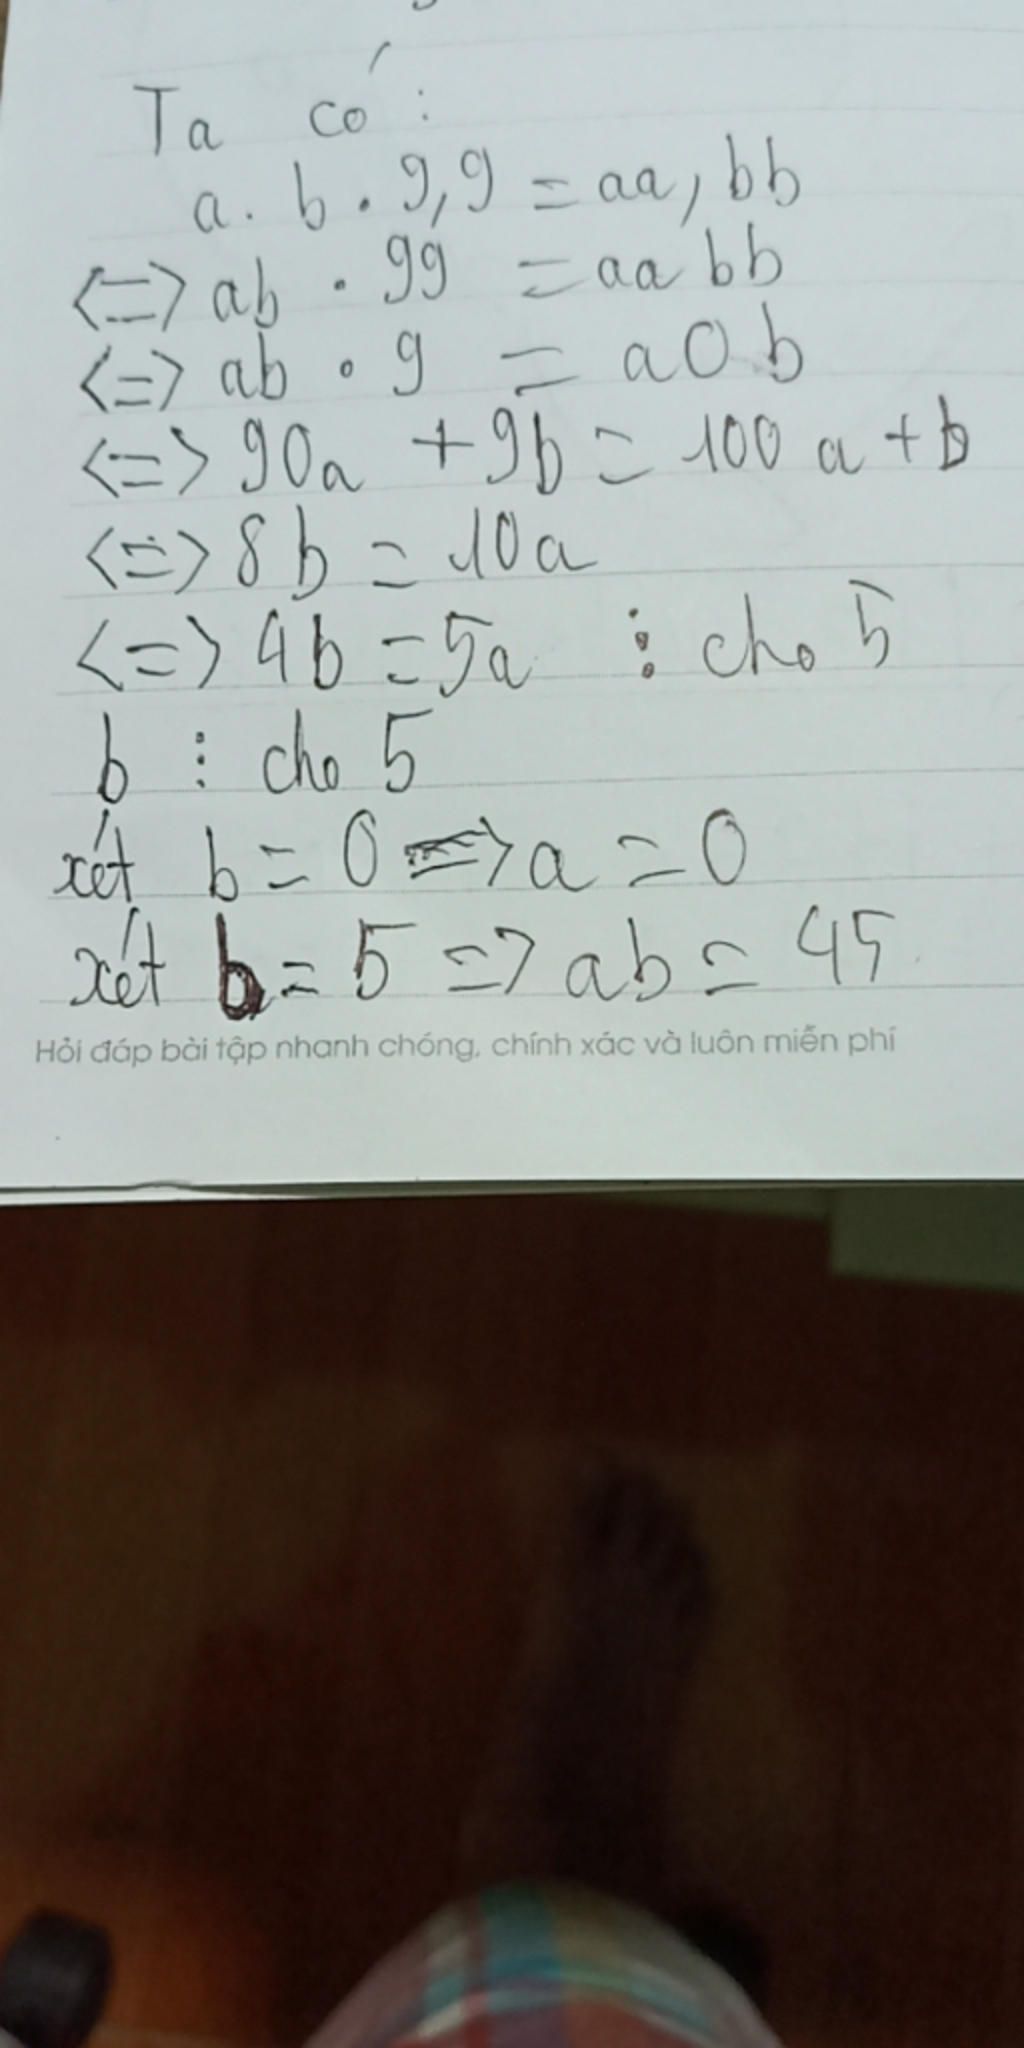 Ta có :
a . b . 9,9 = aa,bb
<=> ab . 99 = aabb
<=> ab . 9 = a0b
<=> 90a + 9b = 100a + b
<=> 8b = 10a
<=> 4b = 5a ⋮ cho 5
b ⋮ cho 5
xét b = 0 => a = 0
xét b = 5 => ab = 45
Hỏi đáp bài tập nhanh chóng, chính xác và luôn miễn phí